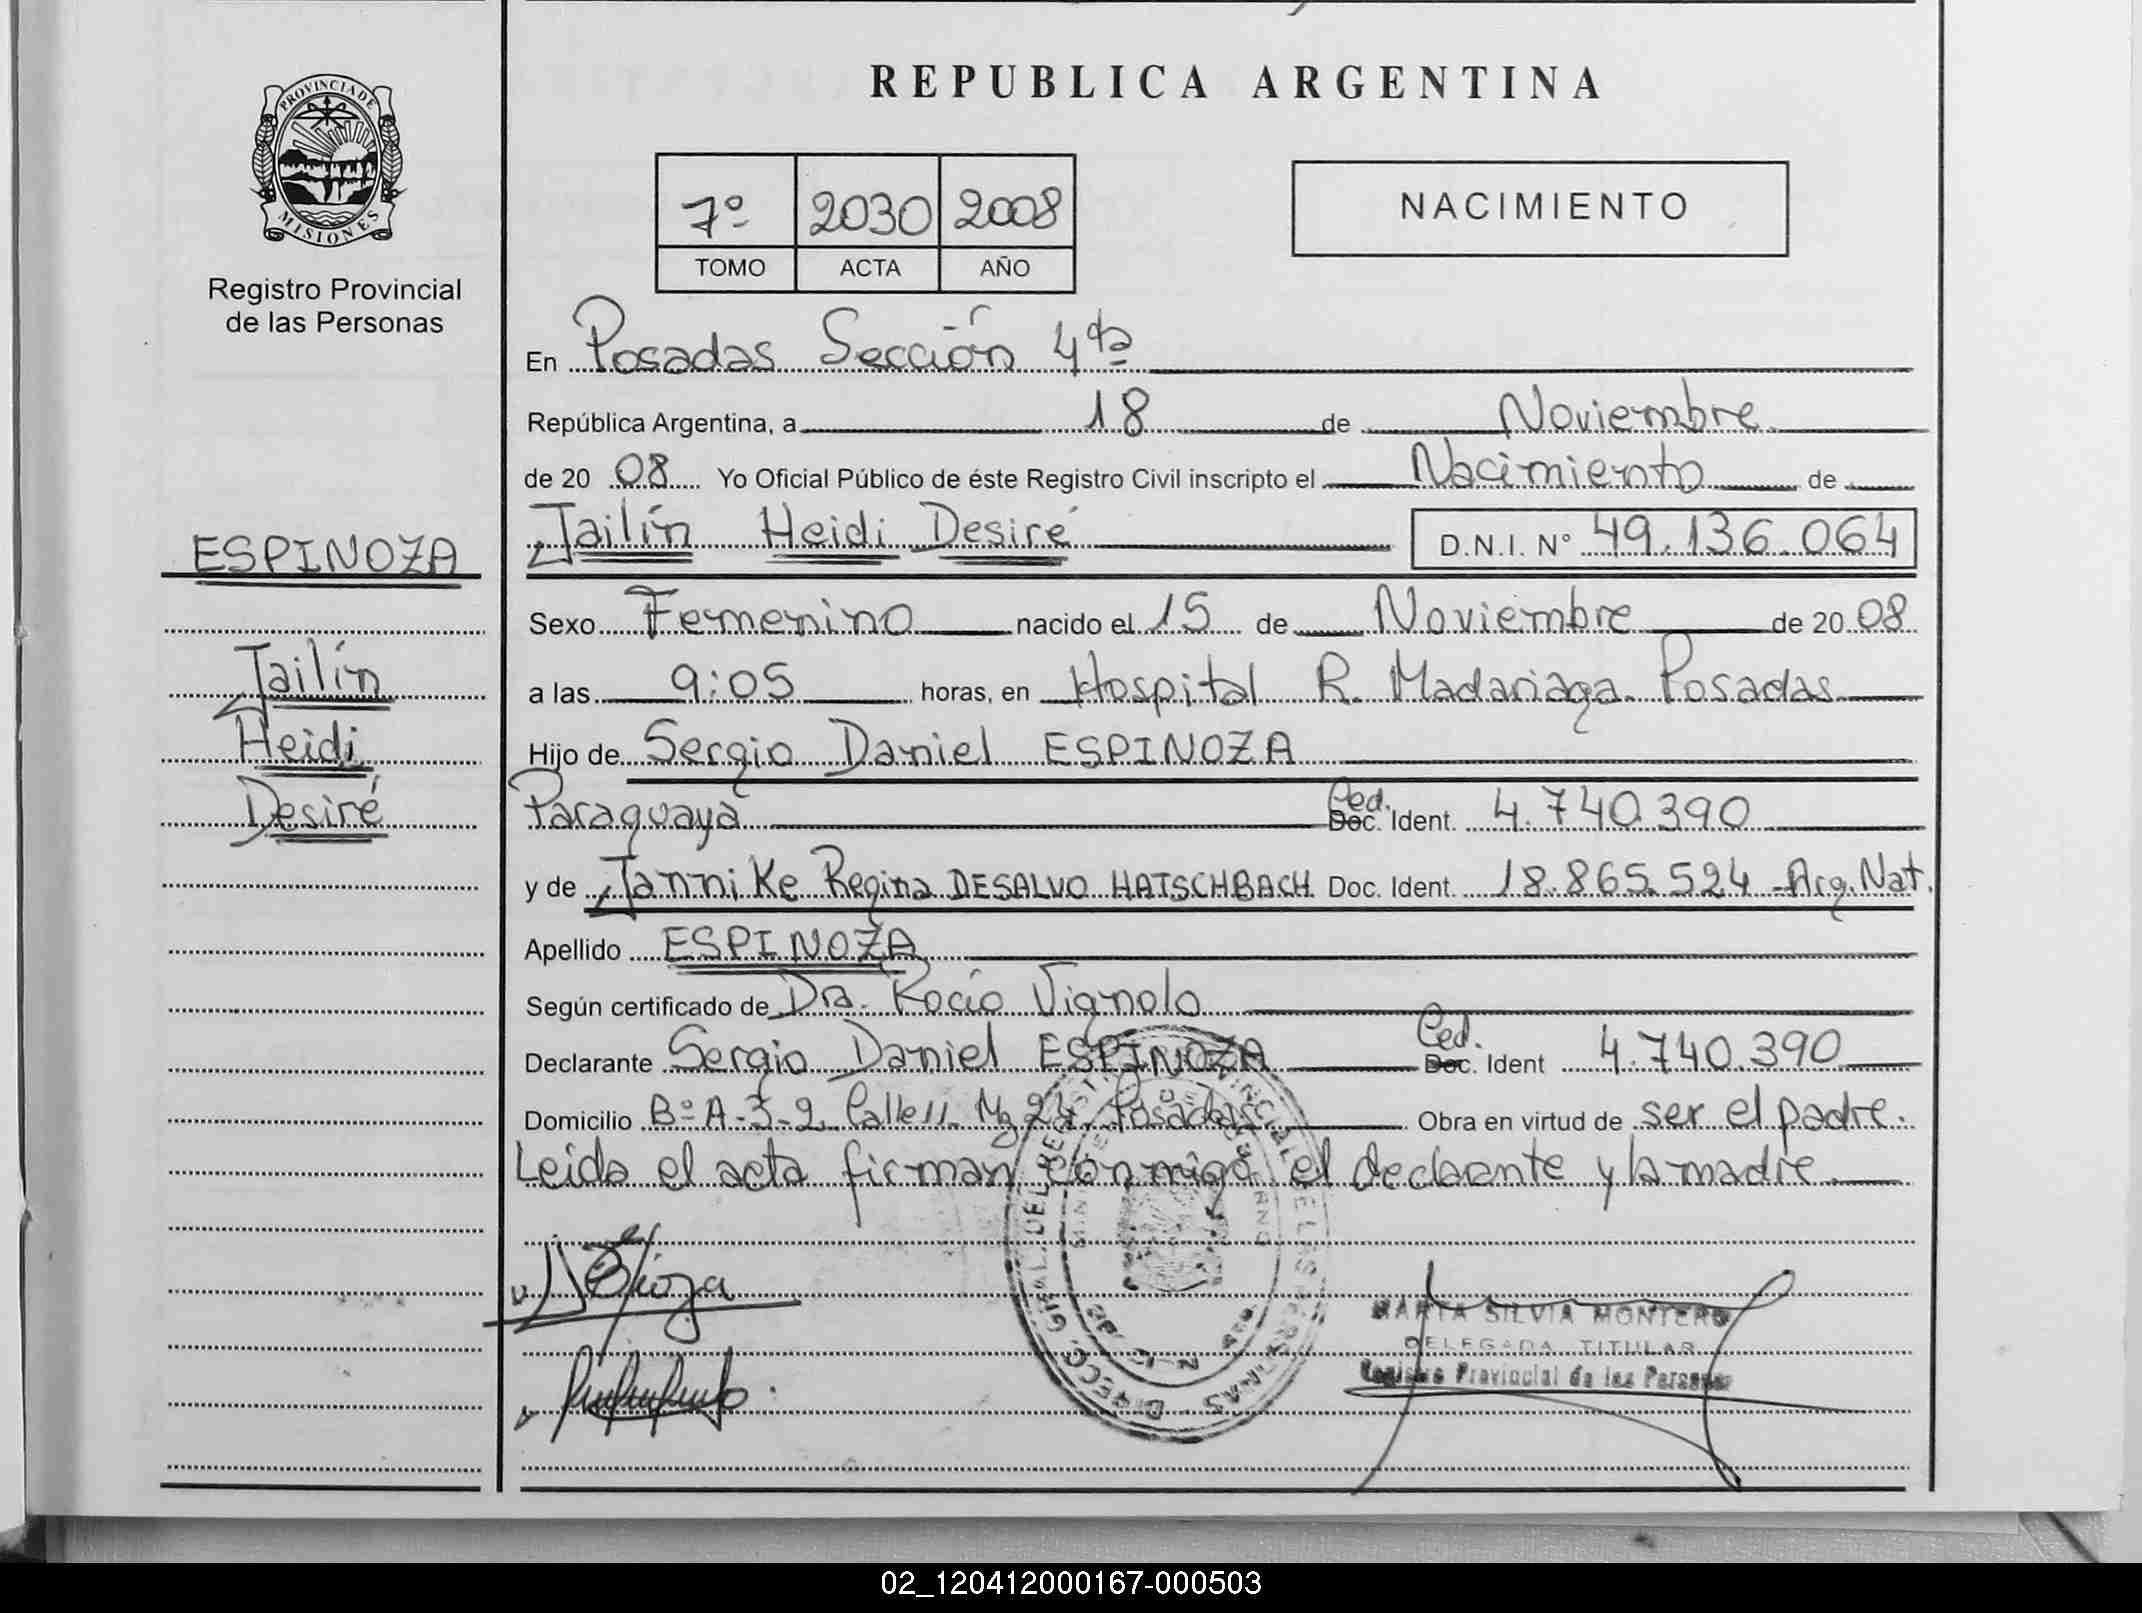 REPUBLICA ARGENTINA
PROVINCIA DE
MISIONES
Registro Provincial
de las Personas
7º 2030 2008
TOMO ACTA AÑO
NACIMIENTO
En Posadas Sección 4ta
República Argentina, a 18 de Noviembre
de 20 08 Yo Oficial Público de éste Registro Civil inscripto el Nacimiento de
Jailín Heidi Desiré D.N.I. Nº 49.136.064
ESPINOZA
Jailín
Heidi
Desiré
Sexo Femenino nacido el 15 de Noviembre de 20 08
a las 9:05 horas, en Hospital R. Madariaga Posadas
Hijo de Sergio Daniel ESPINOZA
Paraguaya Ced. Doc. Ident. 4.740.390
y de Jannike Regina DESALVO HATSCHBACH Doc. Ident. 18.865.524 Arg. Nat.
Apellido ESPINOZA
Según certificado de Dra. Rocío Vignolo
Declarante Sergio Daniel ESPINOZA Ced. Doc. Ident 4.740.390
Domicilio Bº A-3-2 Calle 11 Mz 24 Posadas Obra en virtud de ser el padre.
Leida el acta firman conmigo el declarante y la madre.
MARTA SILVIA MONTERO
DELEGADA TITULAR
Registro Provincial de las Personas
02_120412000167-000503